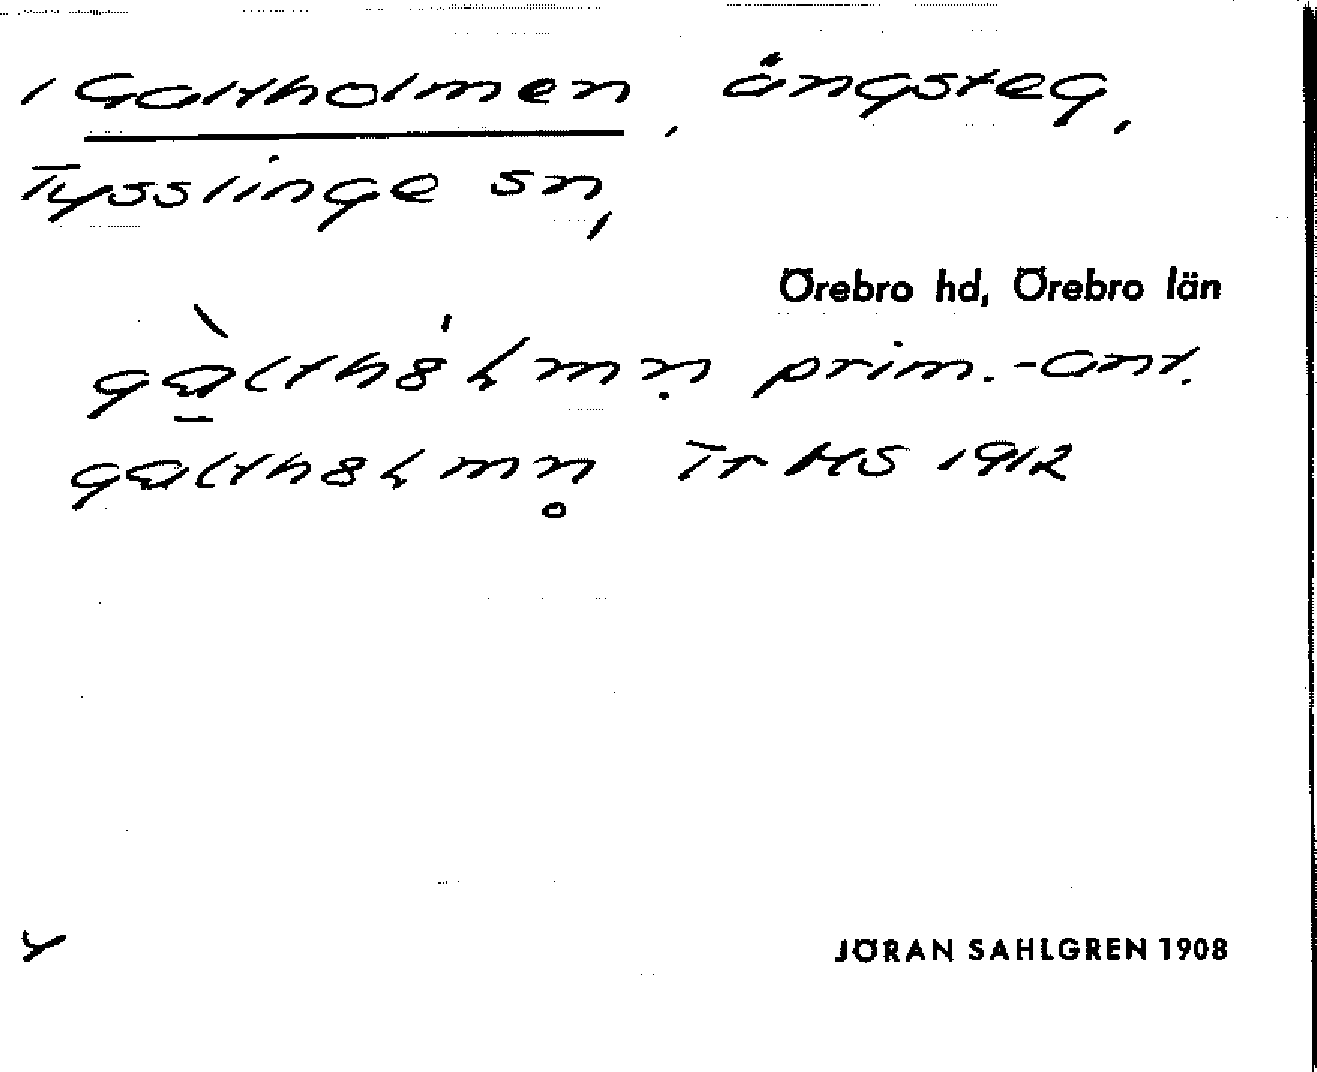 1 Galtholmen, ängsteg,
Tysslinge sn,
Örebro hd, Örebro län
gàlth8ɬmṇ prim.-ant.
galth8ɬmn̥ Tr HS 1912
JÖRAN SAHLGREN 1908